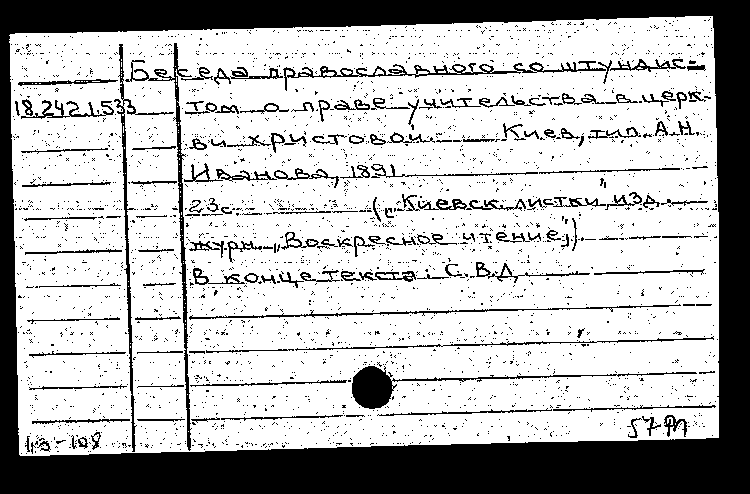 Беседа православного со штундис-
18.242.1.533 том о праве учительства в церк-
ви христовой. Киев, тип. А.Н.
Иванова, 1891.
23с. („Киевск. листки", изд.
журн. „Воскресное чтение";)
В конце текста: С.В.Д.